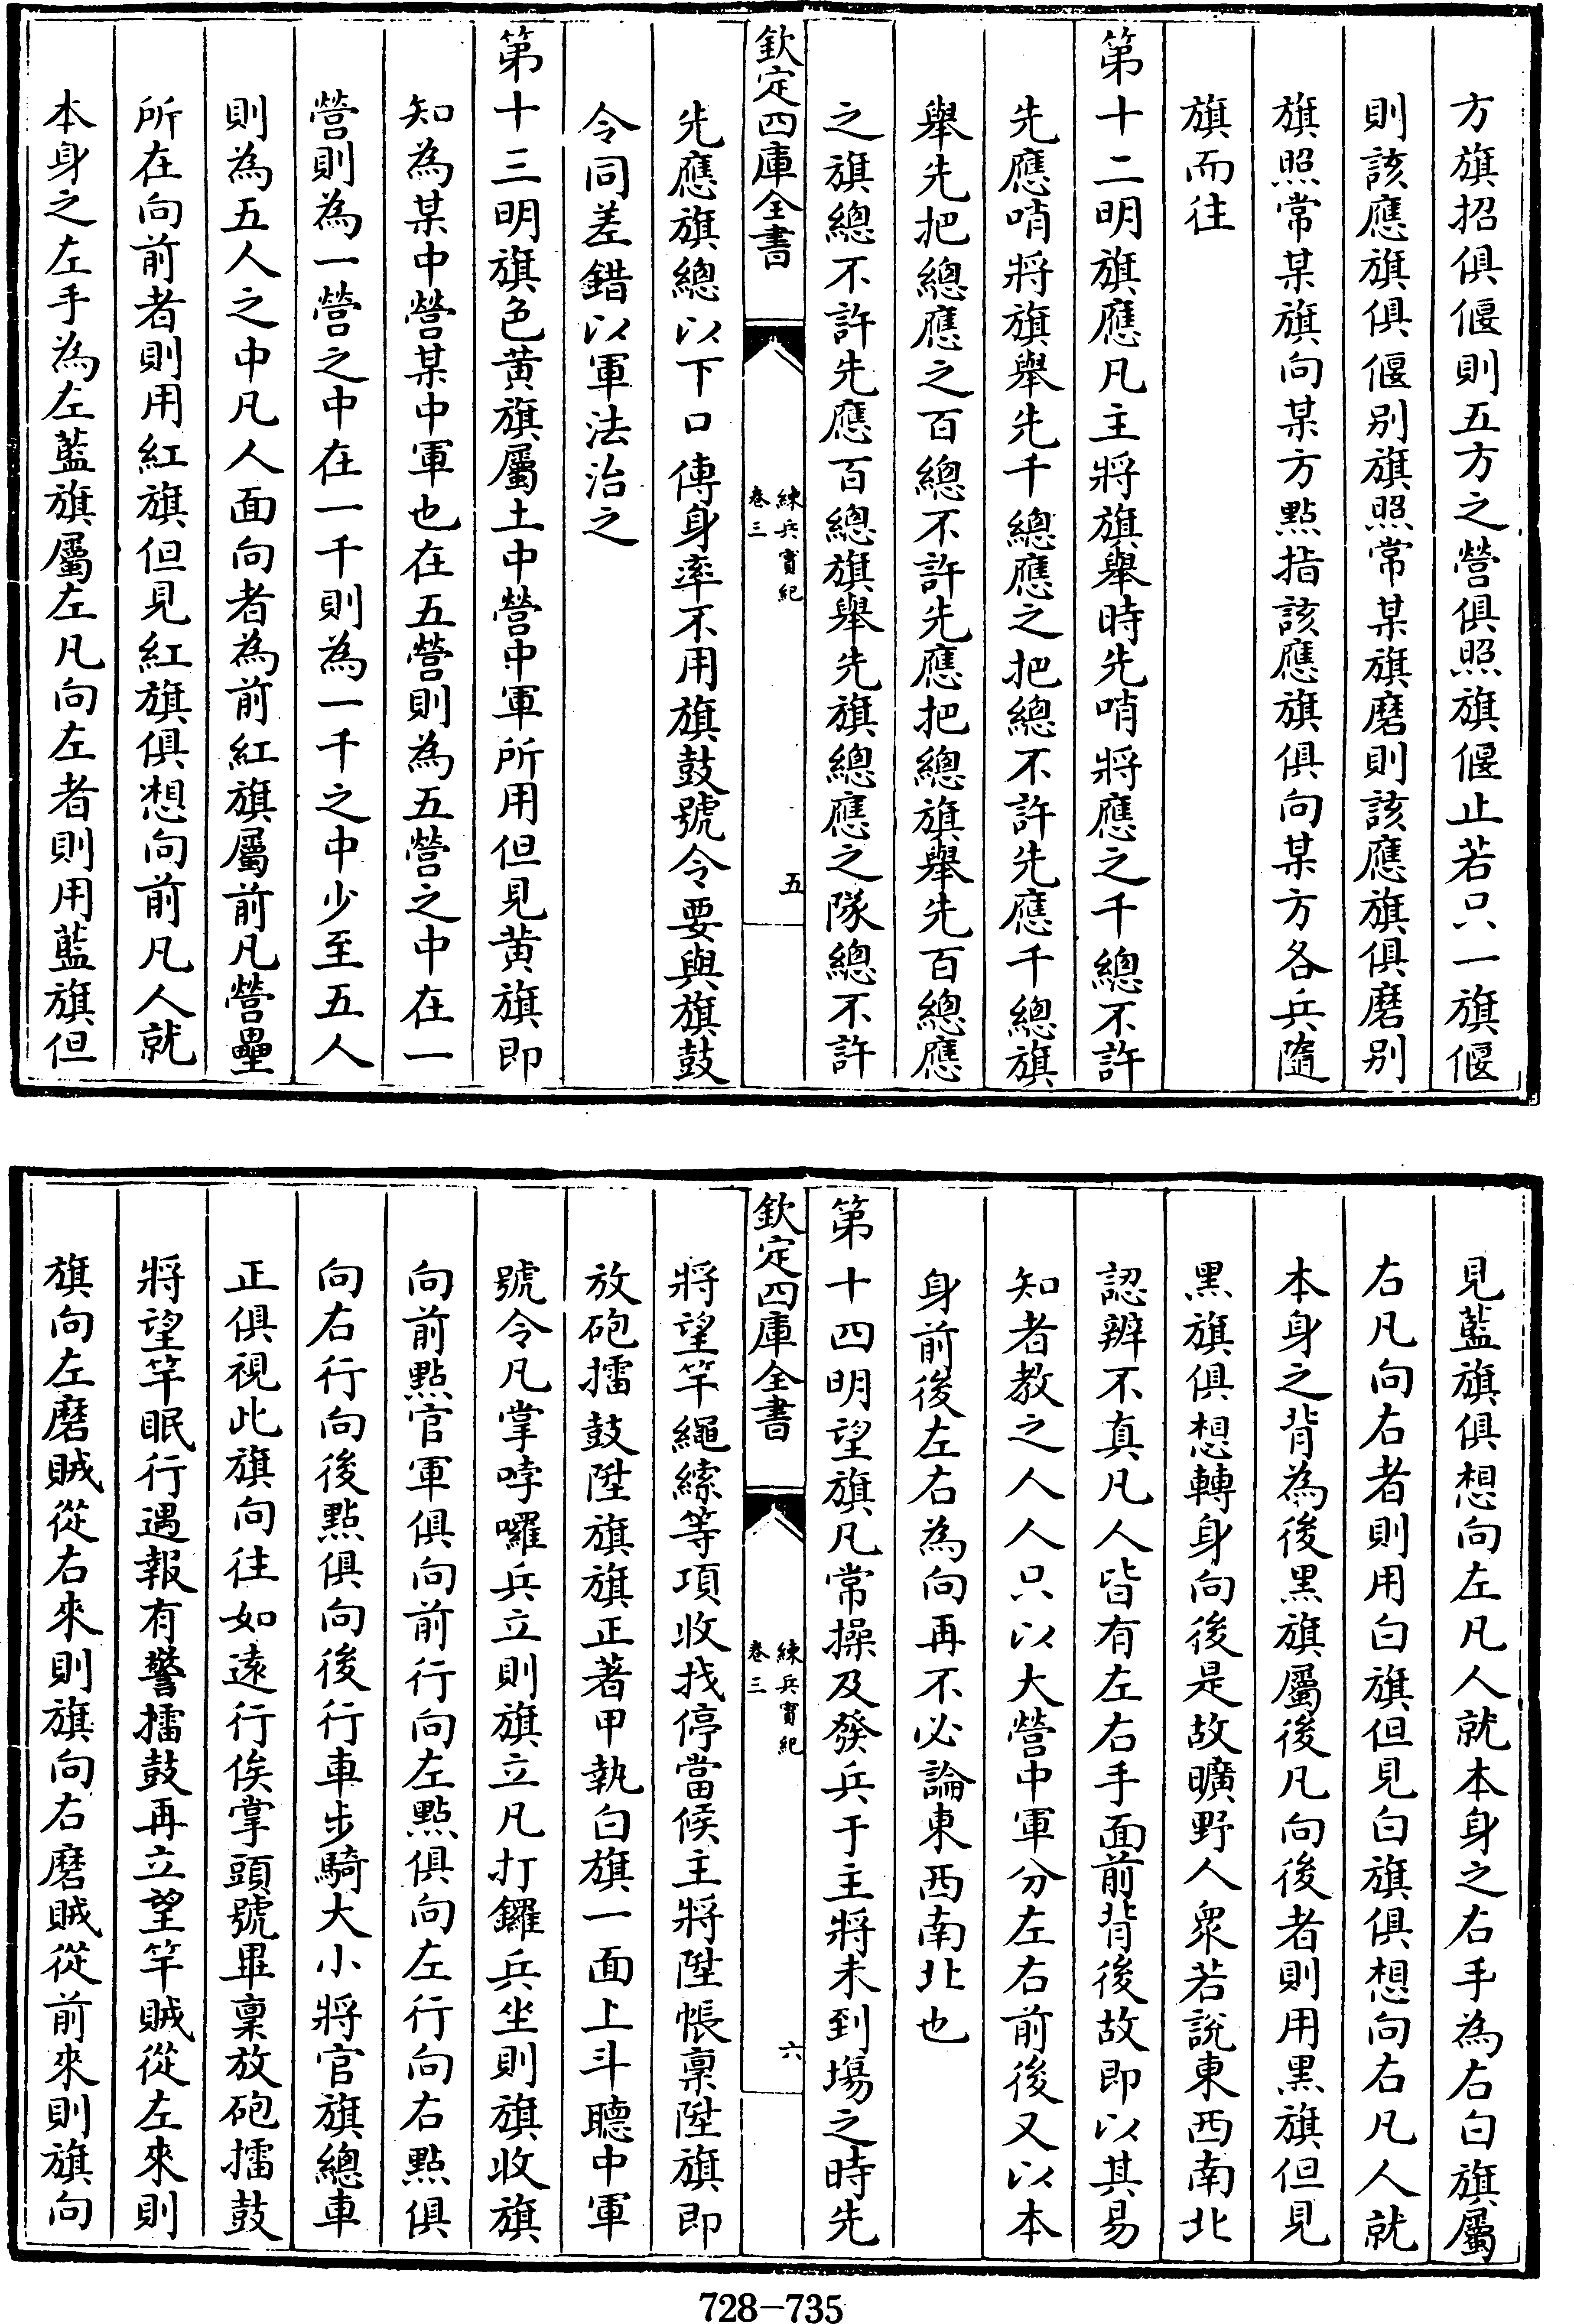 方旗招俱偃則五方之營俱照旗偃止若只一旗偃
則該應旗俱偃别旗照常某旗磨則該應旗俱磨别
旗照常某旗向某方點指該應旗俱向某方各兵隨
旗而往
第十二明旗應凡主將旗舉時先哨將應之千總不許
先應哨將旗舉先千總應之把總不許先應千總旗
舉先把總應之百總不許先應把總旗舉先百總應
之旗總不許先應百總旗舉先旗總應之隊總不許
欽定四庫全書
練兵實紀
卷三
五
先應旗總以下口傳身率不用旗鼓號令要與旗鼓
令同差錯以軍法治之
第十三明旗色黄旗屬土中營中軍所用但見黄旗即
知為某中營某中軍也在五營則為五營之中在一
營則為一營之中在一千則為一千之中少至五人
則為五人之中凡人面向者為前紅旗屬前凡營壘
所在向前者則用紅旗但見紅旗俱想向前凡人就
本身之左手為左藍旗屬左凡向左者則用藍旗但
見藍旗俱想向左凡人就本身之右手為右白旗屬
右凡向右者則用白旗但見白旗俱想向右凡人就
本身之背為後黑旗屬後凡向後者則用黑旗但見
黑旗俱想轉身向後是故曠野人衆若說東西南北
認辨不真凡人皆有左右手面前背後故即以其易
知者教之人人只以大營中軍分左右前後又以本
身前後左右為向再不必論東西南北也
第十四明望旗凡常操及發兵于主將未到場之時先
欽定四庫全書
練兵實紀
卷三
六
將望竿繩縤等項收找停當候主將陞帳稟陞旗即
放砲擂鼓陞旗旗正著甲執白旗一面上斗聽中軍
號令凡掌哱囉兵立則旗立凡打鑼兵坐則旗收旗
向前點官軍俱向前行向左點俱向左行向右點俱
向右行向後點俱向後行車步騎大小將官旗總車
正俱視此旗向往如遠行俟掌頭號畢稟放砲擂鼓
將望竿眠行遇報有警擂鼓再立望竿賊從左來則
旗向左磨賊從右來則旗向右磨賊從前來則旗向
728—735